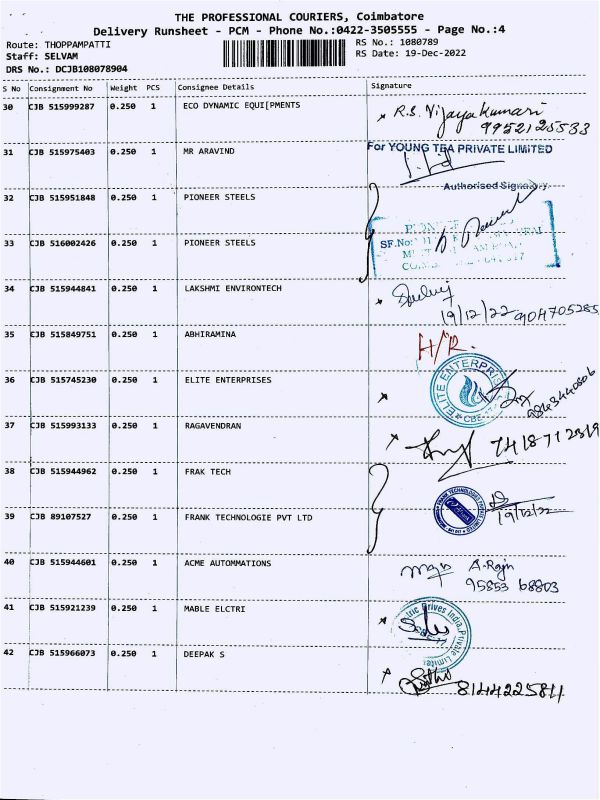 THE PROFESSIONAL COURIERS, Coimbatore
Delivery Runsheet - PCM - Phone No.:0422-3505555 - Page No.:4
Route: THOPPAMPATTI
RS No.: 1080789
Staff: SELVAM
RS Date: 19-Dec-2022
DRS No.: DCJB108078904
S No Consignment No Weight PCS Consignee Details Signature
30 CJB 515999287 0.250 1 ECO DYNAMIC EQUI[PMENTS R.S. Vijayakumari
9952125533
31 CJB 515975403 0.250 1 MR ARAVIND For YOUNG TEA PRIVATE LIMITED
Authorised Signatory.
32 CJB 515951848 0.250 1 PIONEER STEELS
33 CJB 516002426 0.250 1 PIONEER STEELS SF.No:
34 CJB 515944841 0.250 1 LAKSHMI ENVIRONTECH
19/12/22 904705285
35 CJB 515849751 0.250 1 ABHIRAMINA H/R.
36 CJB 515745230 0.250 1 ELITE ENTERPRISES ELITE ENTERPRISES
CBE
37 CJB 515993133 0.250 1 RAGAVENDRAN 7418712319
38 CJB 515944962 0.250 1 FRAK TECH
39 CJB 89107527 0.250 1 FRANK TECHNOLOGIE PVT LTD 19/12/22
40 CJB 515944601 0.250 1 ACME AUTOMMATIONS A.Raja
95853 68803
41 CJB 515921239 0.250 1 MABLE ELCTRI tric Drives India Private Limited
42 CJB 515966073 0.250 1 DEEPAK S 8144225811